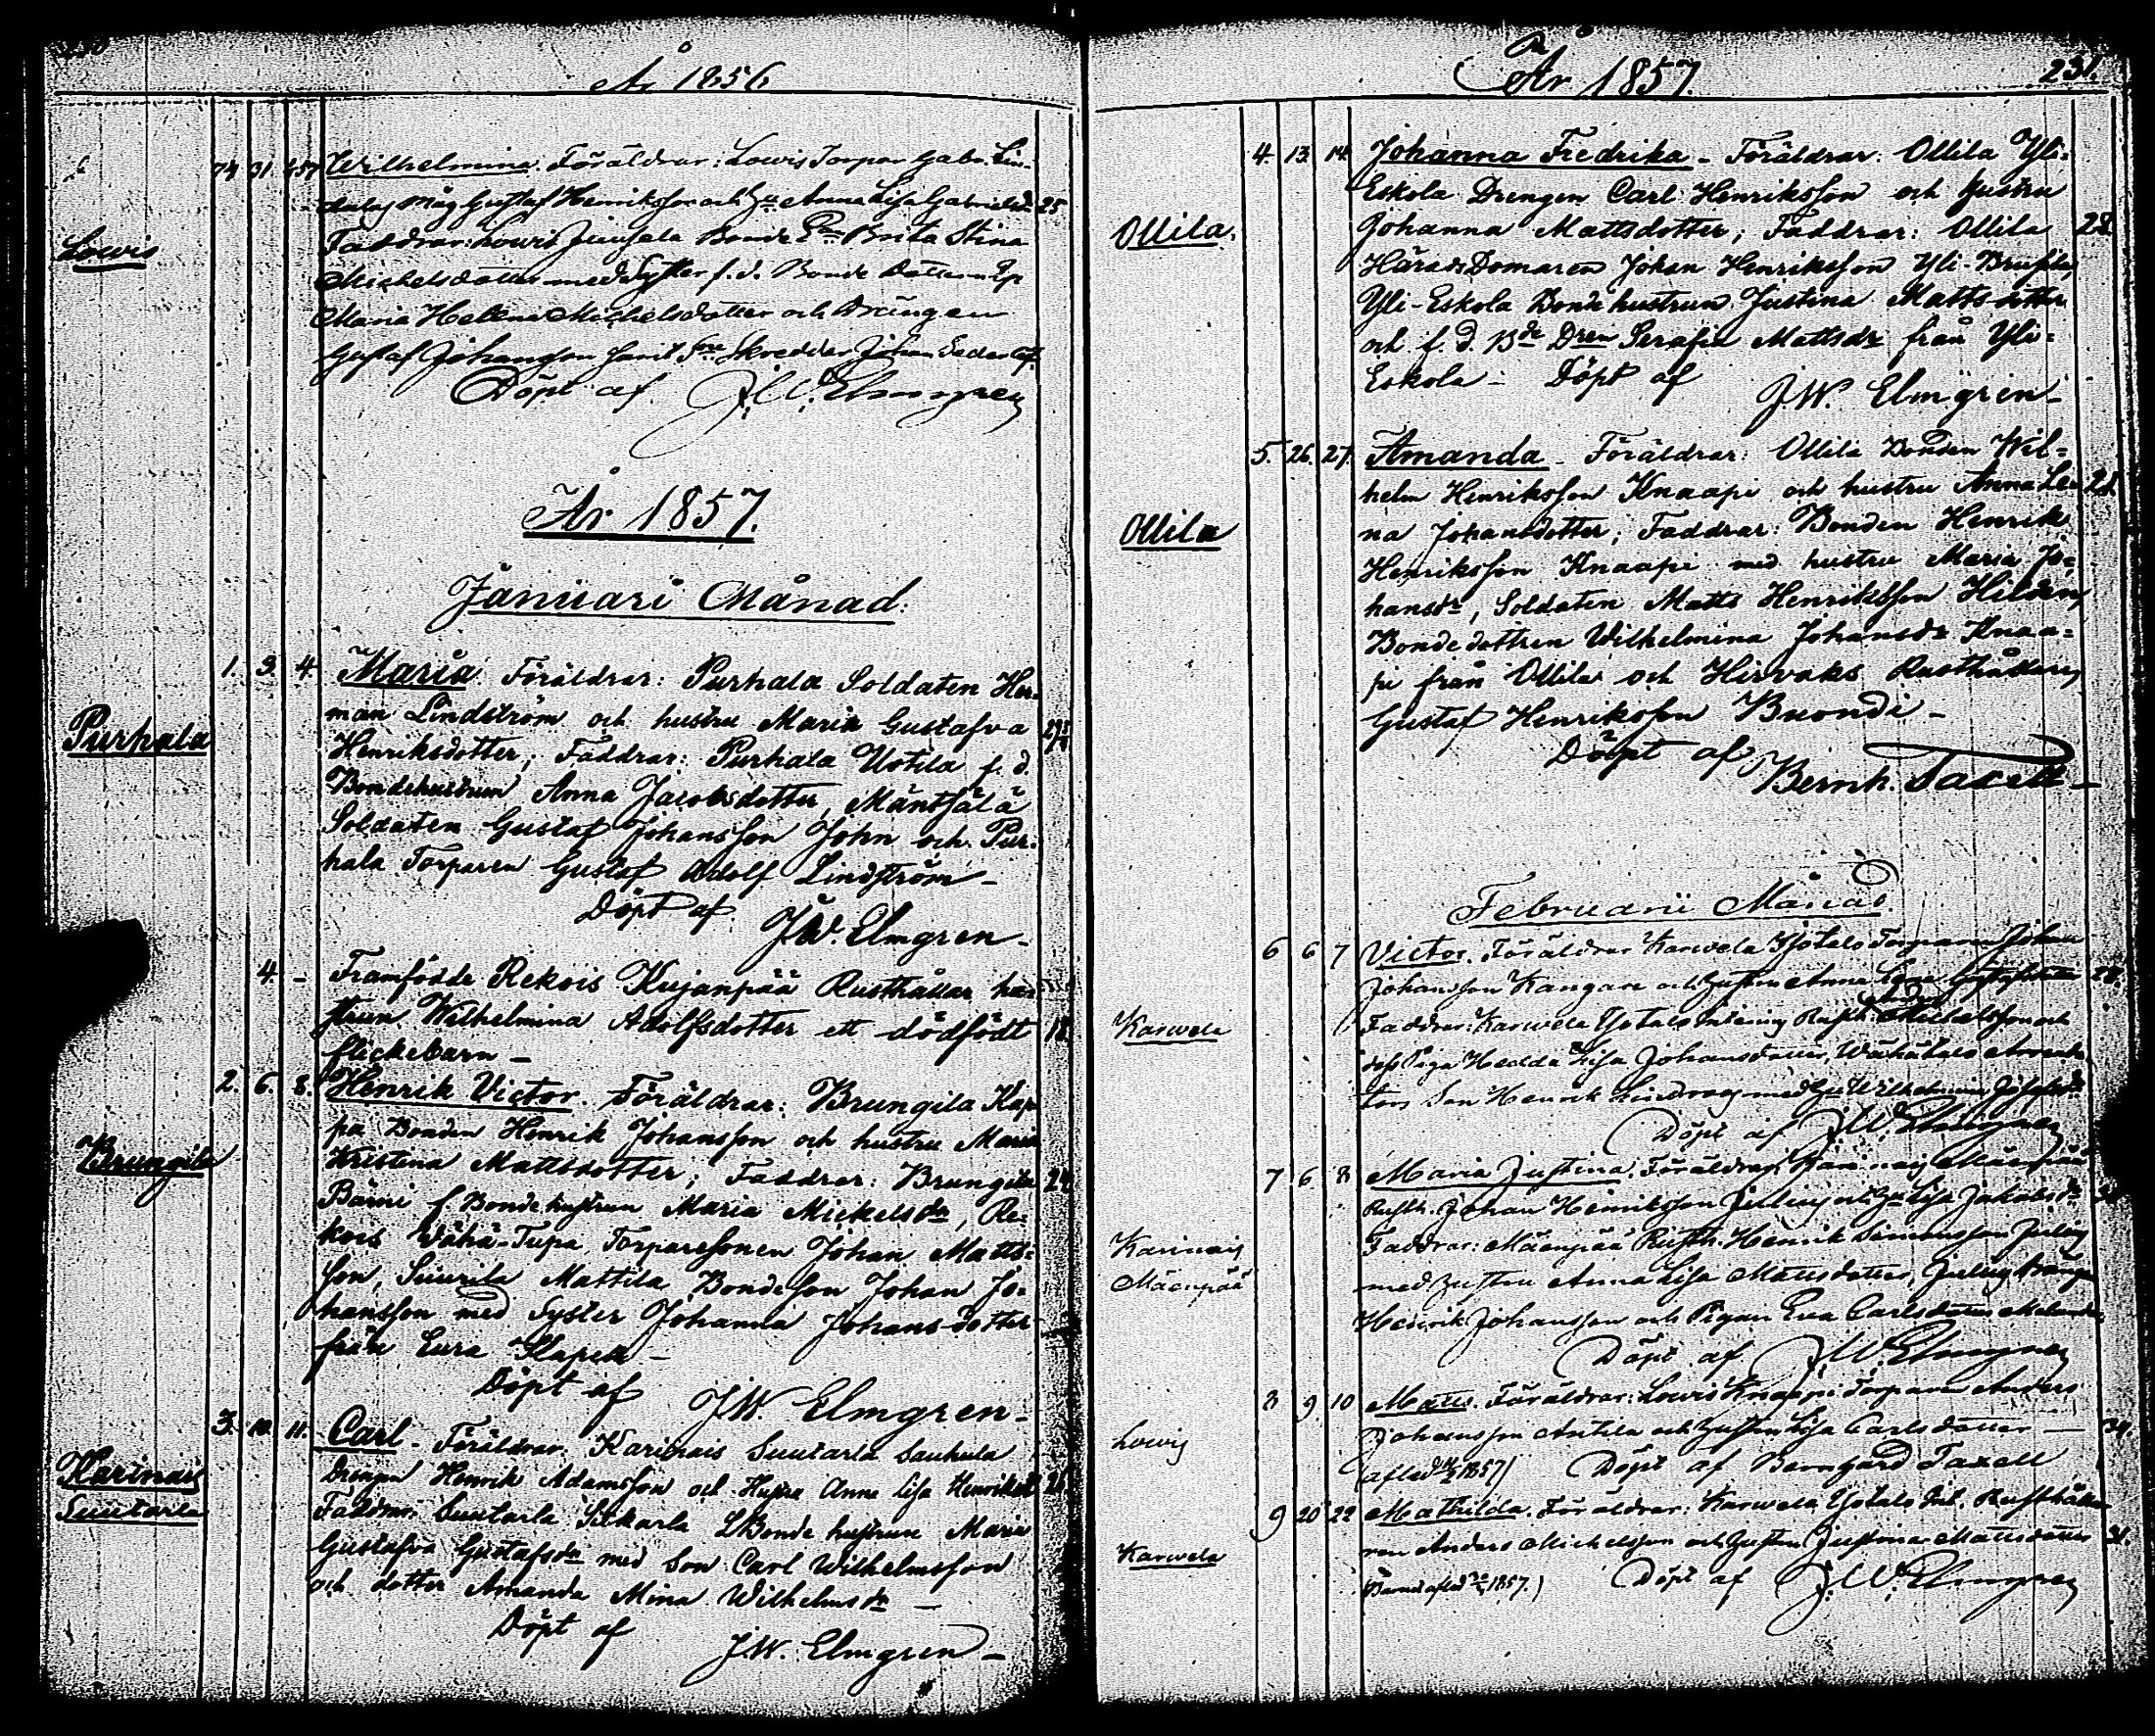 År 1856
74 31 Wilhelmina. Föräldrar: Lowis Torpar Gabr. Lin-
måg Gustaf Henriksson och Hu Anna Lisa Gabrielsd. 25
Lowis
Faddrar: Lowis Bonde Brita Stina
Michelsdotter med Syster f. d. Bonde
Maria Helena Michelsdotter och Drängen
Gustaf Johansson samt Skredder Johan
Döpt af J.W. Elmgren
År 1857.
Januari Månad.
1. 3. 4. Maria. Föräldrar: Purhala Soldaten Her-
Purhala
man Lindström och hustru Maria Gustafva
Henriksdotter; Faddrar: Purhala Uotila f. d.
Bondehustrun Anna Jacobsdotter, Mäntsälä
Soldaten Gustaf Johansson John och Pur-
hala Torparen Gustaf Adolf Lindström –
Döpt af J.W. Elmgren –
4. – Framfödde Rekois Kujanpää Rusthållar hu-
strun Wilhelmina Adolfsdotter ett dödfödt 18.
flickebarn –
2. 6. 8. Henrik Victor. Föräldrar: Brungila Kap-
Brungila
pa Bonden Henrik Johansson och hustru Maria
Kristina Mattsdotter; Faddrar: Brungila
Bäni f Bondehustrun Maria Mickelsdr, Re-
kois Wähä-Tupa Torparesonen Johan Matts-
son, Suurila Mattila Bondeson Johan Jo-
hansson med Syster Johanna Johans-dotter
från Eura Kapell –
Döpt af J.W. Elmgren –
3. 10. 11. Carl – Föräldrar: Karinais Suutarla Sauhula
Karinais
Suutarla
Drengen Henrik Adamsson och Hustru Anna Lisa Henriksdr
Faddrar: Suutarla Sukarla Bonde hustrun Maria
Gustafva Gustafsdr med Son Carl Wilhelmsson
och dotter Amanda Mina Wilhelmsdr –
Döpt af J.W. Elmgren –
År 1857. 231.
4. 13. 14. Johanna Fredrika – Föräldrar: Ollila Yli-
Eskola Drengen Carl Henriksson och hustru
Ollila.
Johanna Mattsdotter; Faddrar: Ollila 28.
HäradsDomaren Johan Henriksson Yli-
Yli-Eskola Bondehustrun Justina Mattsdotter
och f. d. Bde Dren Serafia Mattsdr från Yli-
Eskola – Döpt af J.W. Elmgren –
5. 26. 27. Amanda – Föräldrar: Ollila Bonden Wil-
helm Henriksson Knaapi och hustru Anna Le-
Ollila
na Johansdotter; Faddrar: Bonden Henrik
Henriksson Knaapi med hustru Maria Jo-
hansdr, Soldaten Matts Henriksson Hildén,
Bondedottren Wilhelmina Johansdr Knaa-
pi från Ollila och Hirvoks Rusthållaren
Gustaf Henriksson Buondi –
Döpt af Bernh. Taxell –
Februarii Månad.
6 6 7 Victor. Föräldrar Karwela Torparen Johan
Johansson Kangare och Hustru Anna
Karwela
Faddrar: Karwela
dess Piga Hedda Lisa Johansdotter,
Son Henrik med Hu Wilhelmina
Döpt af J.W. Elmgren
7 6 8 Maria Justina. Föräldrar: Karinais Mäenpää
Rusth. Johan Henriksson och Hu Lisa Jakobsdr
Karinais
Mäenpää
Faddrar: Mäenpää Rusth. Henrik Simonsson
med hustru Anna Lisa Mattsdotter,
Henrik Johansson och Pigan Eva Carlsdotter
Döpt af J.W. Elmgren
8 9. 10 Matts. Föräldrar: Lowis Knaapi Torparen Anders
Lowis
Johansson Antila och Hustru Lisa Carlsdotter –
1857) Döpt af Berngard Taxell
9 20 22 Mathilda. Föräldrar: Karwela Rusthålla-
Karwela
ren Anders Michelsson och Hustru Justina Mattsdotter 31.
1857.) Döpt af J.W. Elmgren